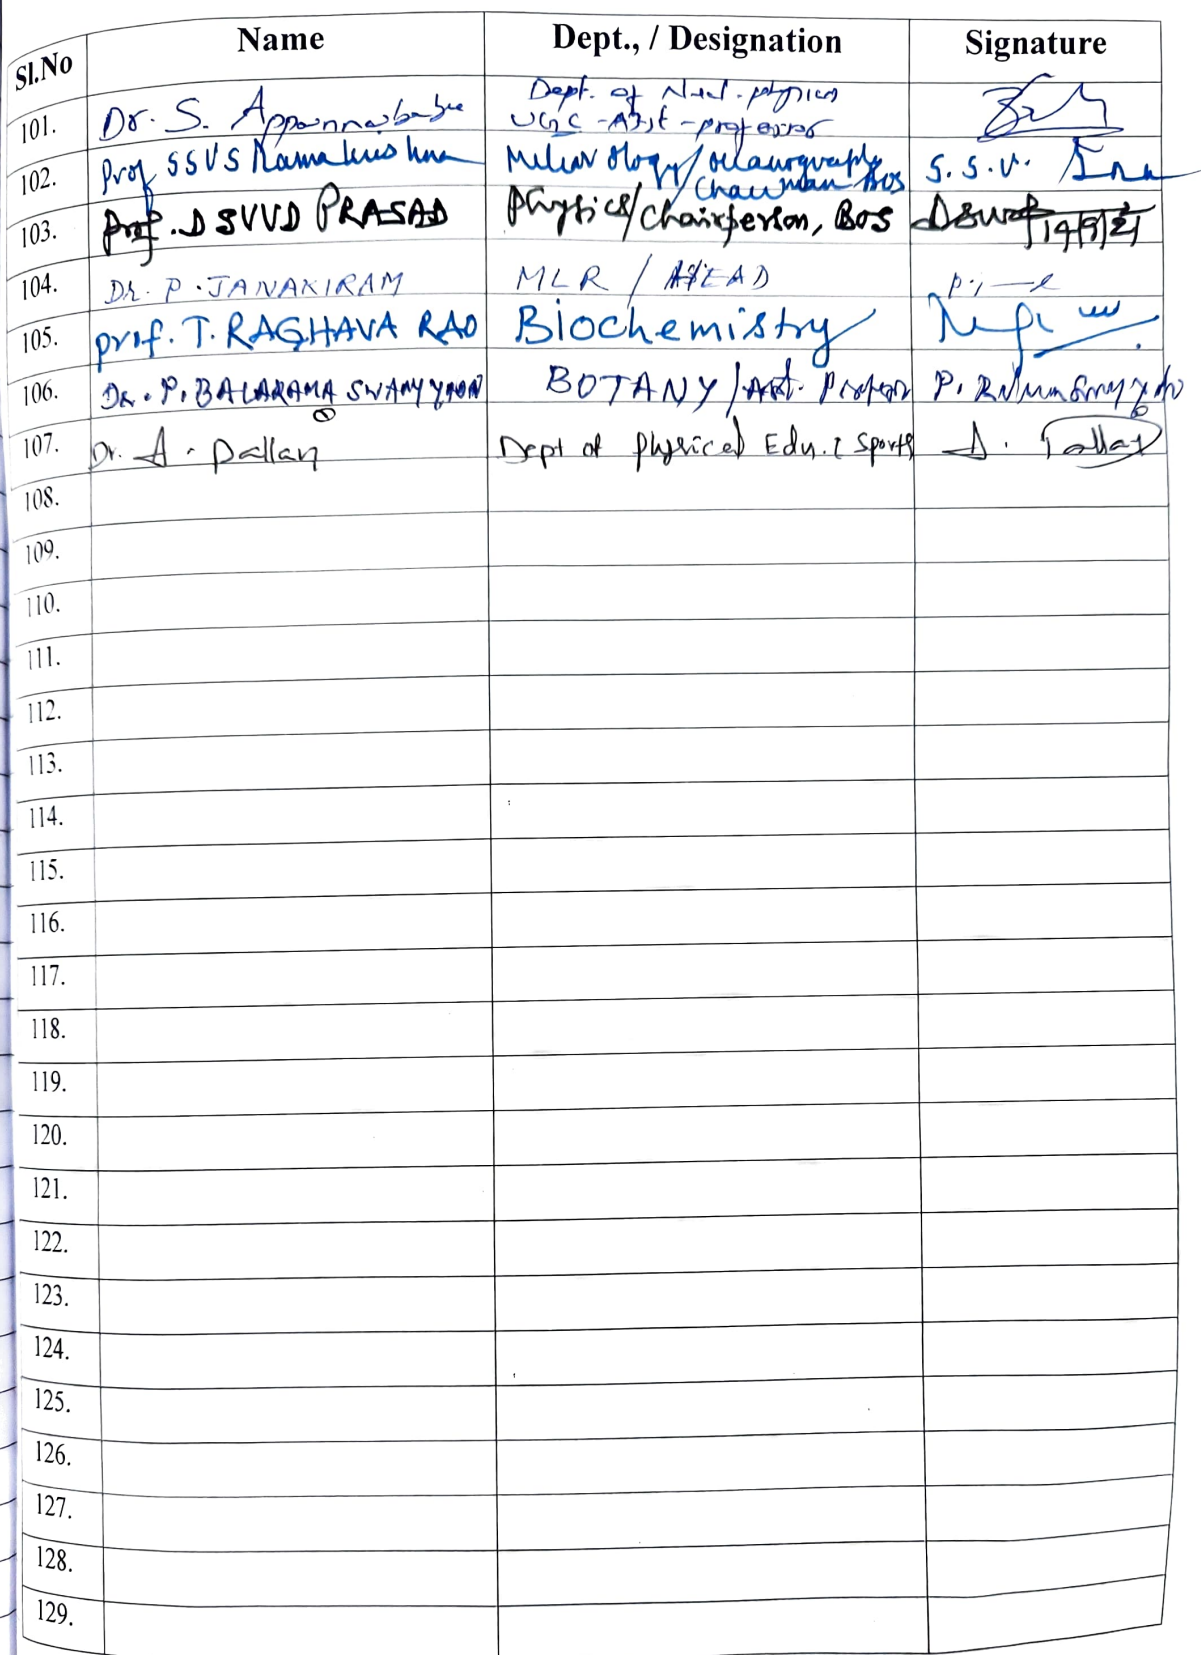 Sl.No Name Dept., / Designation Signature
101. Dr. S. Appannababu Dept. of Nucl. physics
UGC - Asst - professor
102. Prof SSVS Ramakrishna Meteorology/oceanography
Chairman BOS S. S. V.
103. Prof. DSVVD PRASAD Physics/chairperson, BOS
104. Dr. P. JANAKIRAM MLR / HEAD
105. prof. T. RAGHAVA RAO Biochemistry
106. Dr. P. BALARAMA SWAMY BOTANY / Asst. Professor
107. Dr. A. Pallavi Dept of Physical Edu. & Sports A.
108.
109.
110.
111.
112.
113.
114.
115.
116.
117.
118.
119.
120.
121.
122.
123.
124.
125.
126.
127.
128.
129.